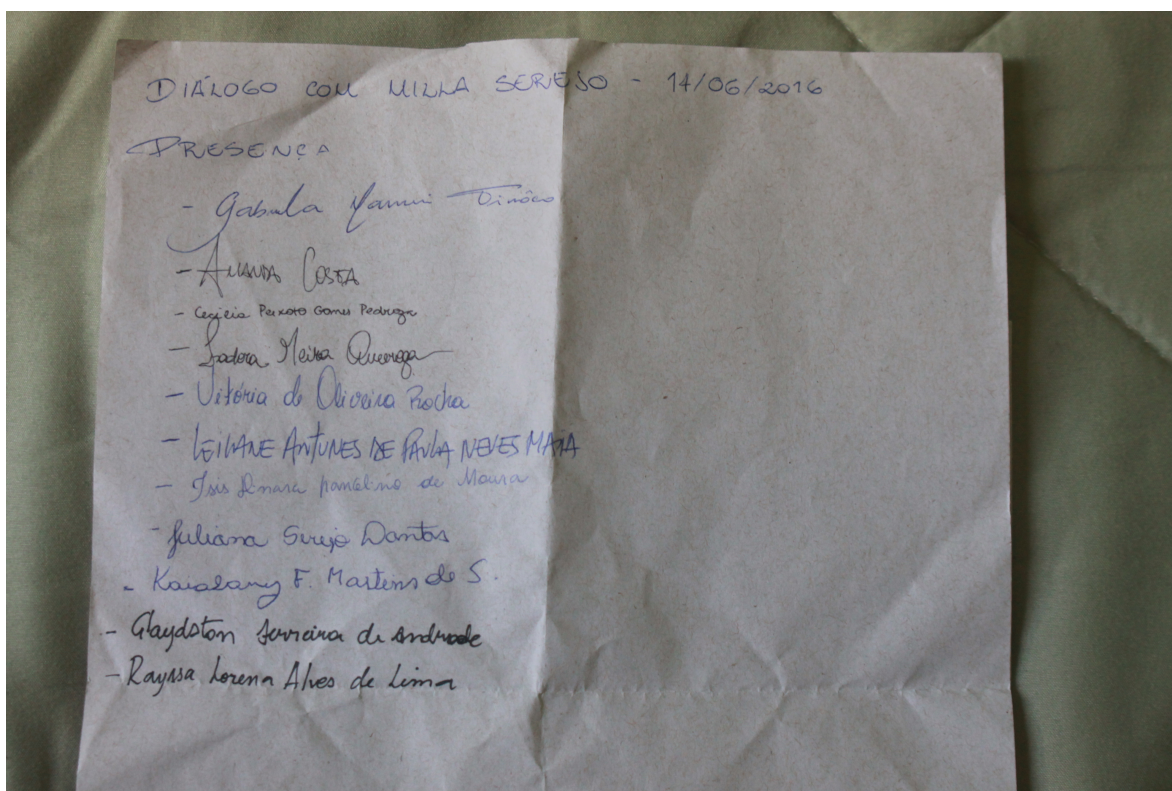 DIÁLOGO COM MILLA SEREJO - 14/06/2016
PRESENÇA
- Tinôco
- Amanda Costa
- Peixoto Gomes Pedroza
- Isadora Meira Queiroga
- Vitória de Oliveira Rocha
- LEILIANE ANTUNES DE PAULA NEVES MAIA
- Isis de Moura
- Juliana Serejo Dantas
- F. Martins de S.
- Glaydston Ferreira de Andrade
- Rayssa Lorena Alves de Lima